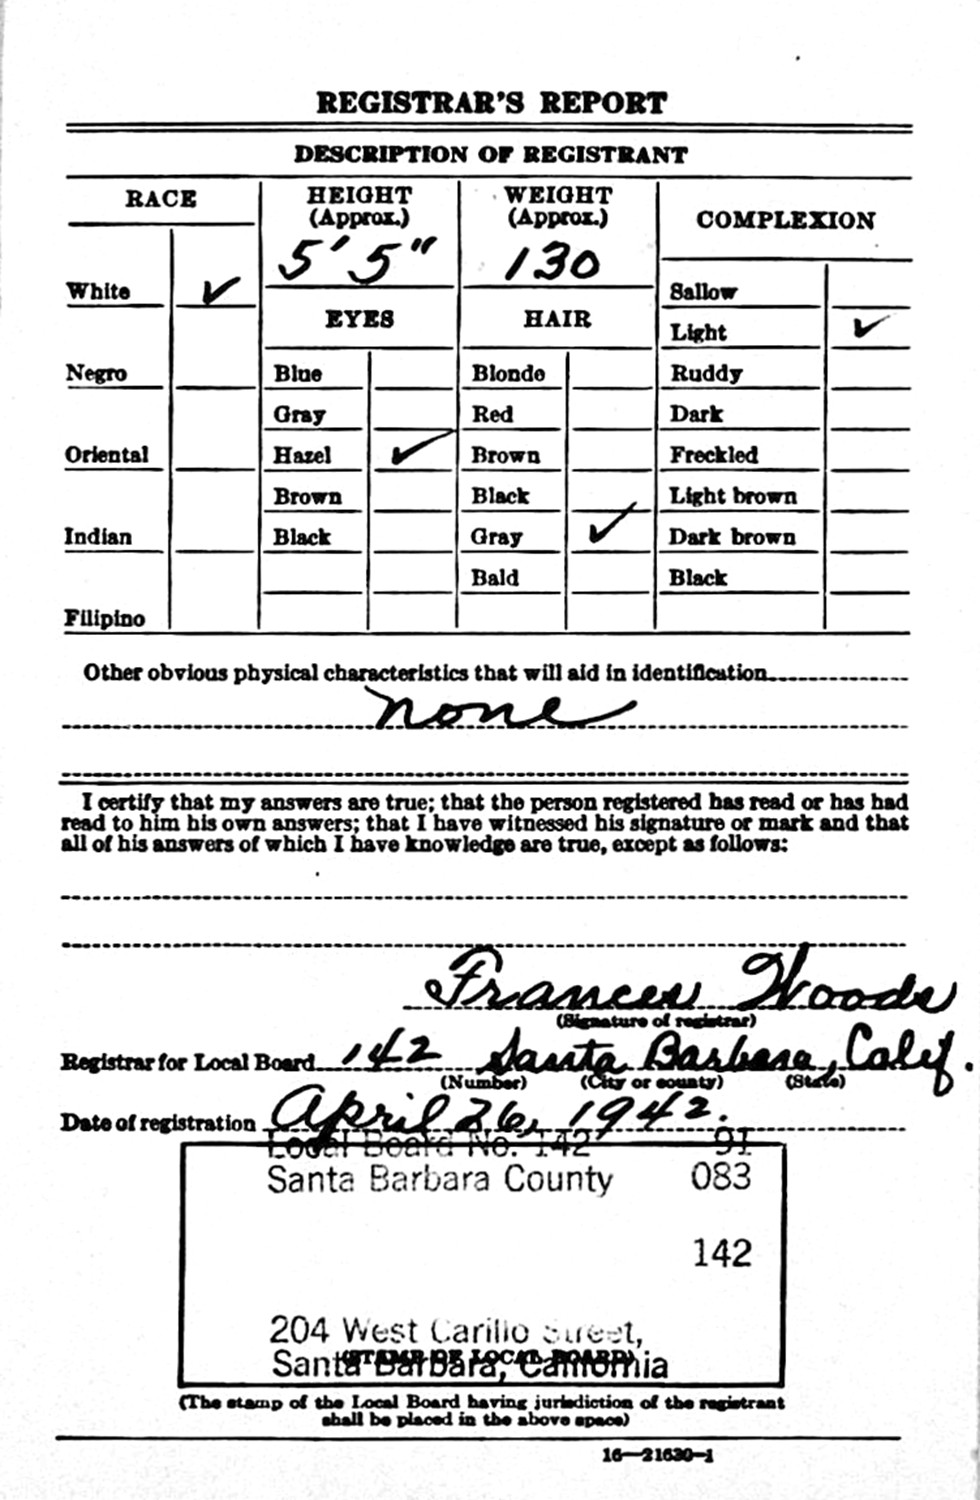 REGISTRAR'S REPORT
DESCRIPTION OF REGISTRANT
RACE
HEIGHT
(Approx.)
WEIGHT
(Approx.)
COMPLEXION
5' 5"
130
White ✓
Sallow
EYES
HAIR
Light ✓
Negro
Blue
Blonde
Ruddy
Gray
Red
Dark
Oriental
Hazel ✓
Brown
Freckled
Brown
Black
Light brown
Indian
Black
Gray ✓
Dark brown
Bald
Black
Filipino
Other obvious physical characteristics that will aid in identification
none
I certify that my answers are true; that the person registered has read or has had
read to him his own answers; that I have witnessed his signature or mark and that
all of his answers of which I have knowledge are true, except as follows:
Frances Woods
(Signature of registrar)
Registrar for Local Board 142 Santa Barbara, Calif.
(Number) (City or county) (State)
Date of registration April 26, 1942.
Local Board No. 142 91
Santa Barbara County 083
142
204 West Carillo Street,
Santa Barbara, California
(STAMP OF LOCAL BOARD)
(The stamp of the Local Board having jurisdiction of the registrant
shall be placed in the above space)
16—21630-1